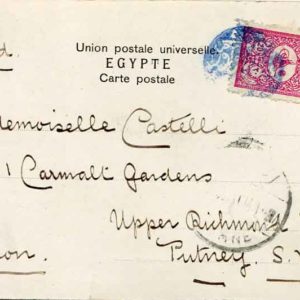 Union postale universelle.
EGYPTE
Carte postale
demoiselle Castelli
1 Carmalt Gardens
Upper Richmond
Putney. S.